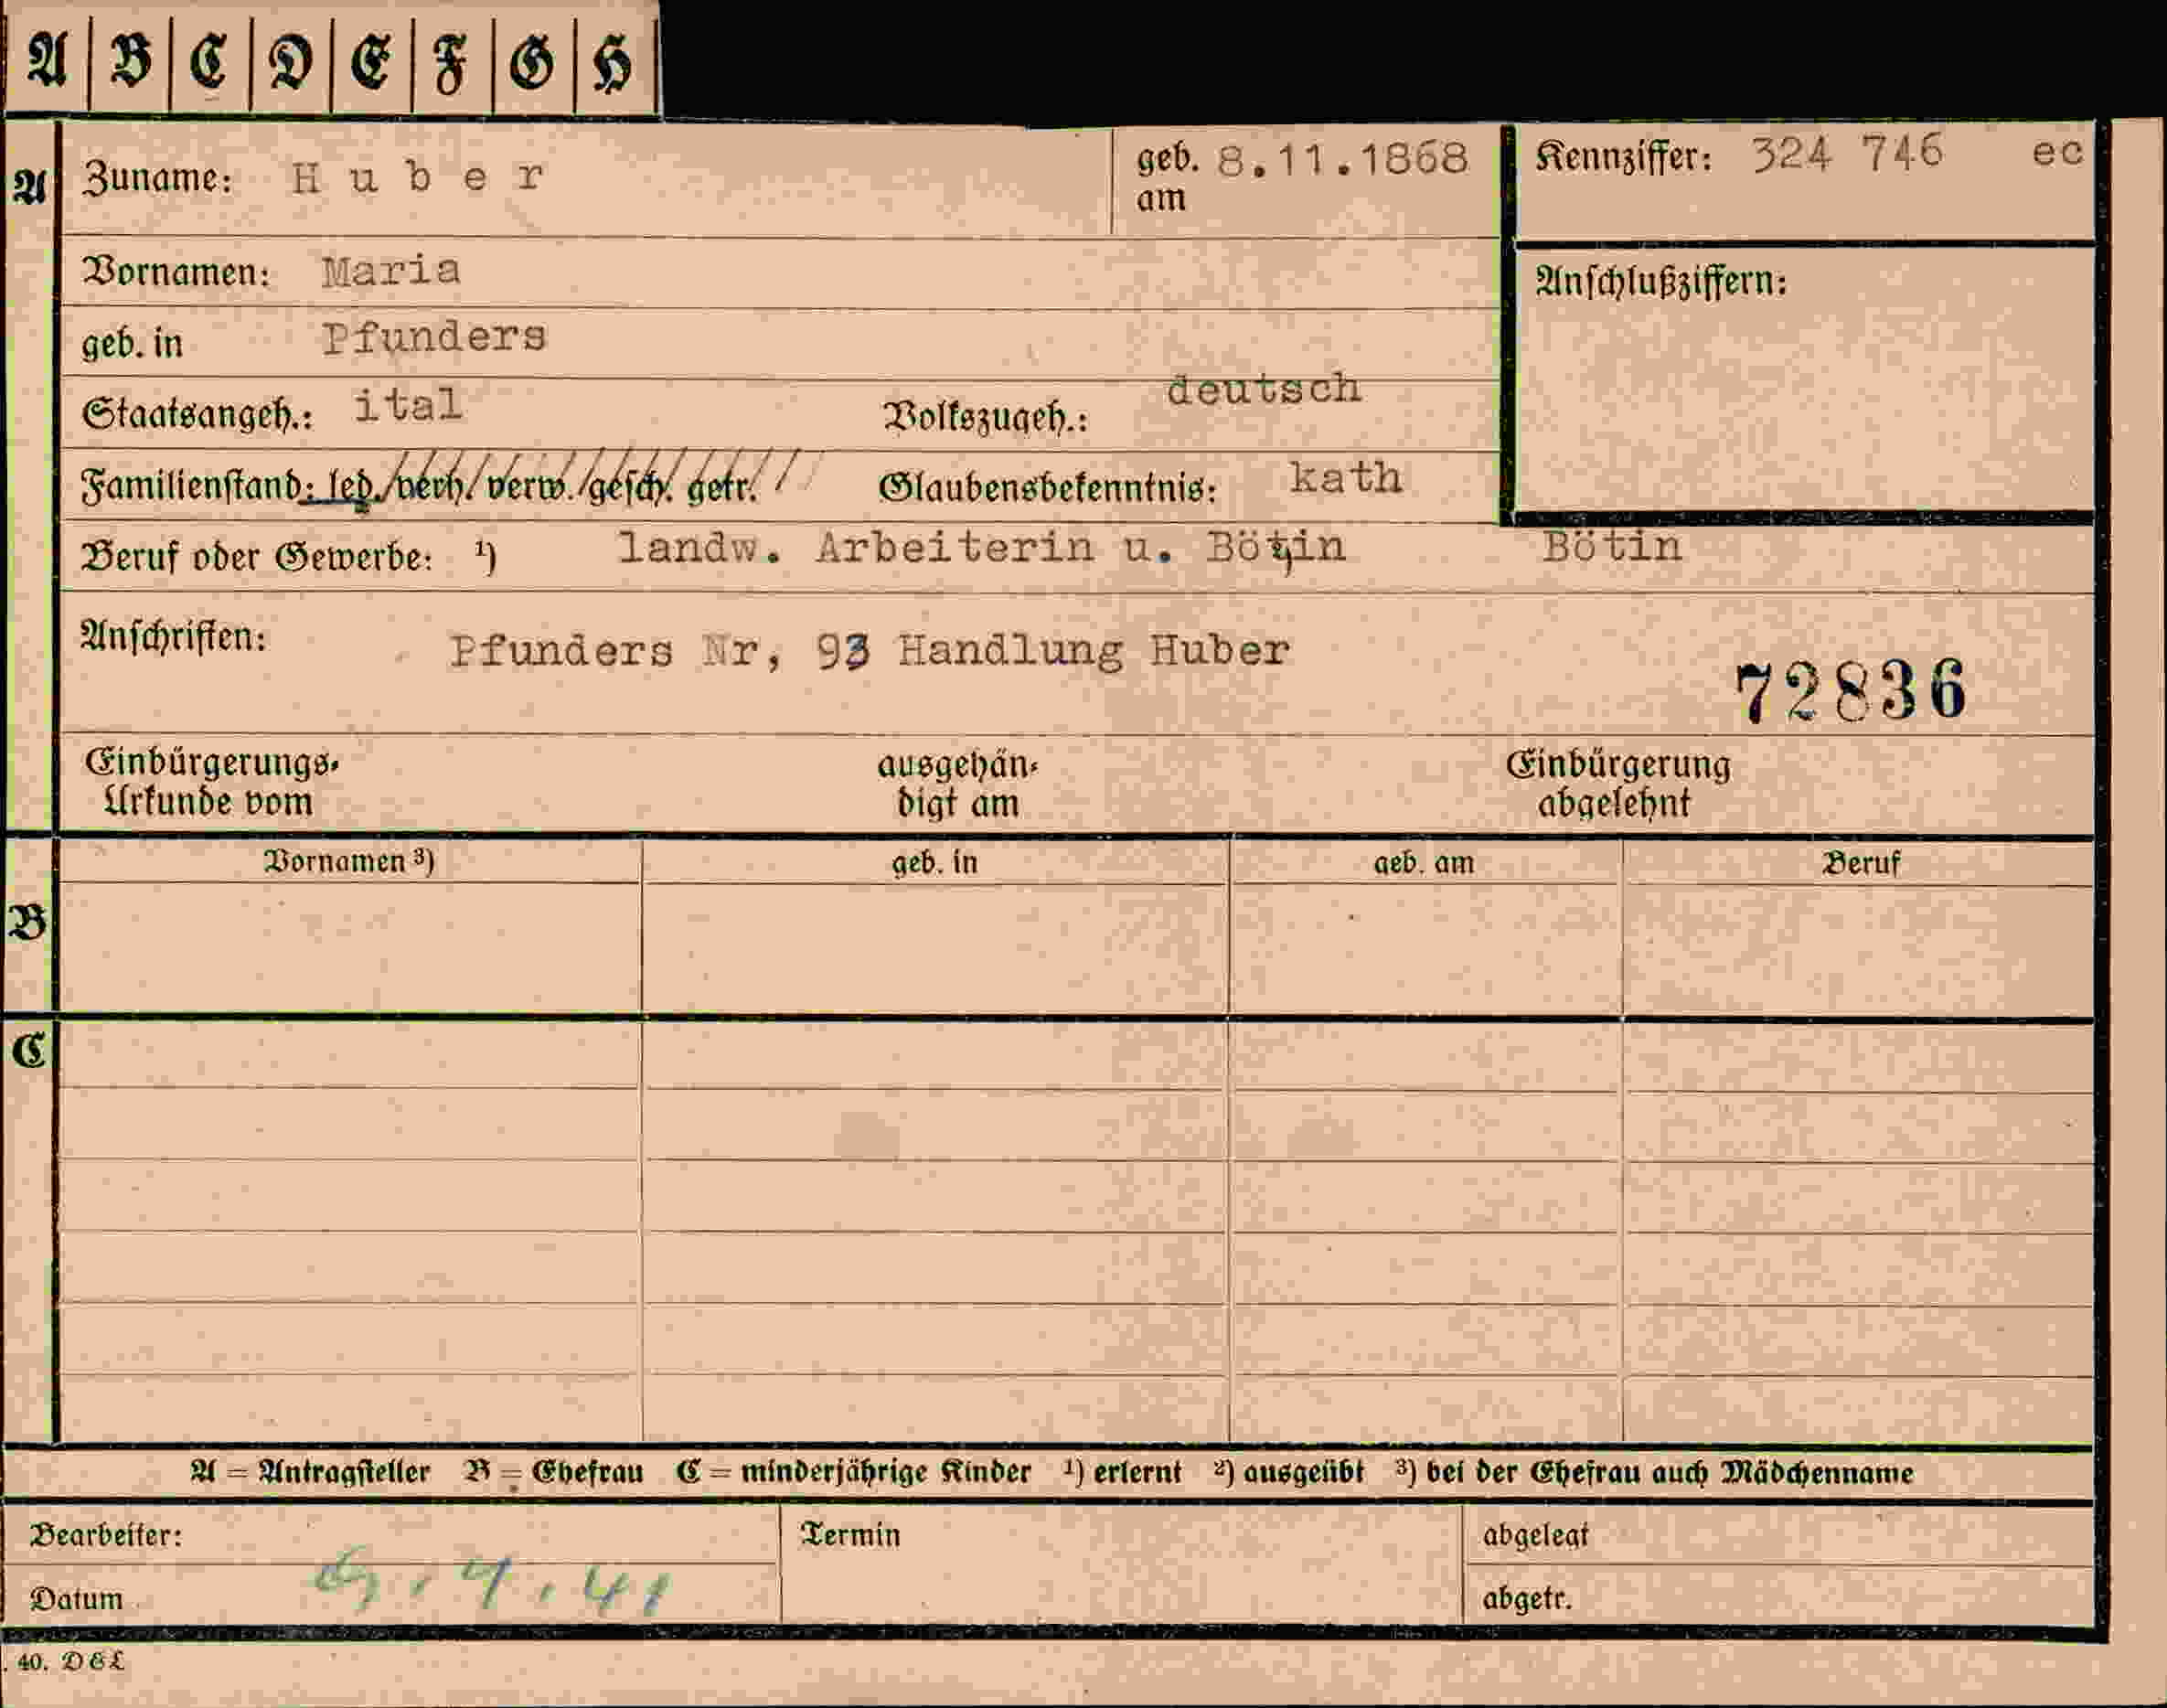 A B C D E F G H
A Zuname: Huber geb. am 8.11.1868 Kennziffer: 324 746 ec
Vornamen: Maria Anschlußziffern:
geb. in Pfunders
Staatsangeh.: ital Volkszugeh.: deutsch
Familienstand: led./verh./verw./gesch. getr. Glaubensbekenntnis: kath
Beruf oder Gewerbe: ¹) landw. Arbeiterin u. Bötin Bötin
Anschriften: Pfunders Nr, 93 Handlung Huber
72836
Einbürgerungs- ausgehän- Einbürgerung
Urkunde vom digt am abgelehnt
Vornamen ³) geb. in geb. am Beruf
B
C
A = Antragsteller B = Ehefrau C = minderjährige Kinder ¹) erlernt ²) ausgeübt ³) bei der Ehefrau auch Mädchenname
Bearbeiter: Termin abgelegt
Datum abgetr.
. 40. D E L